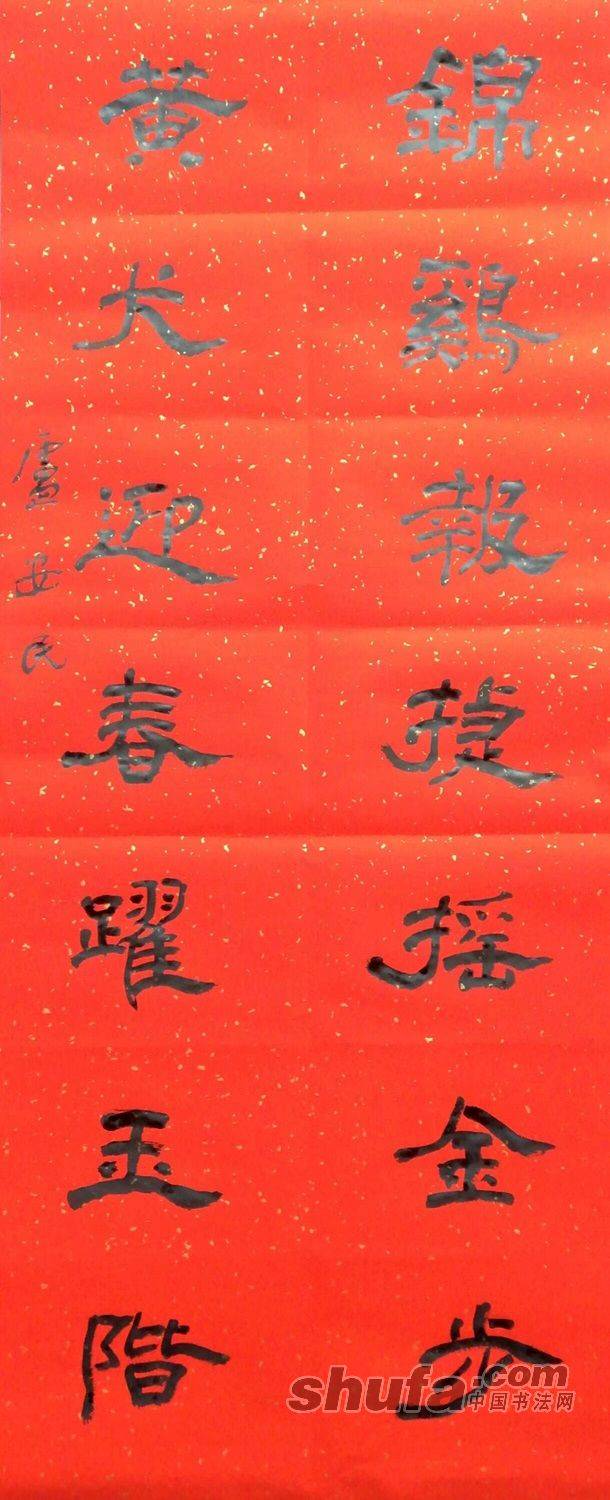 錦鷄報捷摇金步
黄犬迎春躍玉階
盧安民
shufa.com
中国书法网